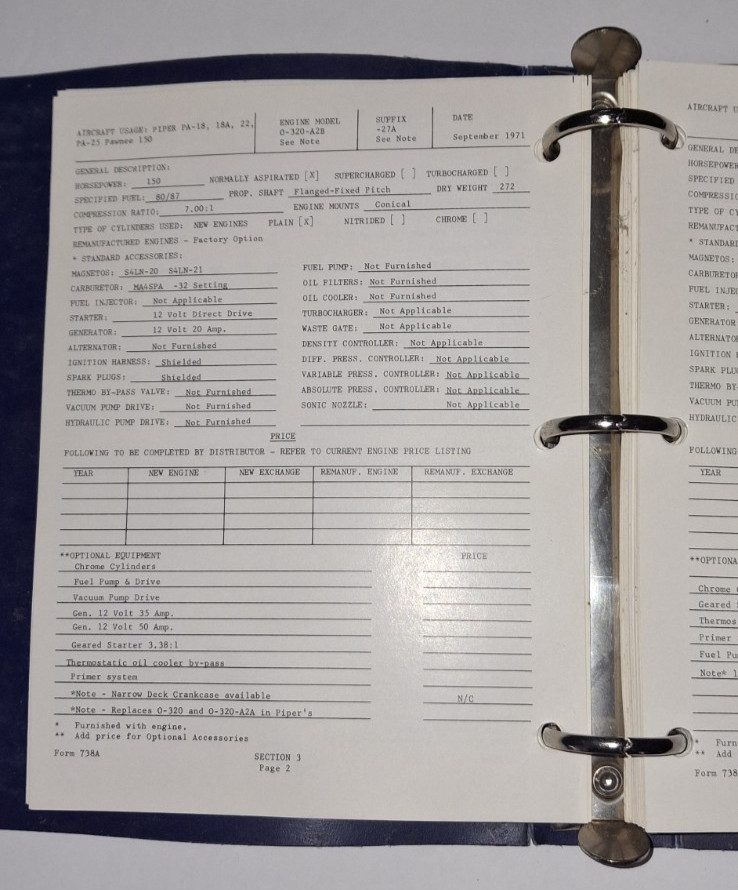 AIRCRAFT USAGE: PIPER PA-18, 18A, 22, PA-25 Pawnee 150
ENGINE MODEL O-320-A2B See Note
SUFFIX -27A See Note
DATE September 1971
GENERAL DESCRIPTION:
HORSEPOWER: 150 NORMALLY ASPIRATED [X] SUPERCHARGED [ ] TURBOCHARGED [ ]
SPECIFIED FUEL: 80/87 PROP. SHAFT Flanged-Fixed Pitch DRY WEIGHT 272
COMPRESSION RATIO: 7.00:1 ENGINE MOUNTS Conical
TYPE OF CYLINDERS USED: NEW ENGINES PLAIN [X] NITRIDED [ ] CHROME [ ]
REMANUFACTURED ENGINES - Factory Option
* STANDARD ACCESSORIES:
MAGNETOS: S4LN-20 S4LN-21
CARBURETOR: MA4SPA -32 Setting
FUEL INJECTOR: Not Applicable
STARTER: 12 Volt Direct Drive
GENERATOR: 12 Volt 20 Amp.
ALTERNATOR: Not Furnished
IGNITION HARNESS: Shielded
SPARK PLUGS: Shielded
THERMO BY-PASS VALVE: Not Furnished
VACUUM PUMP DRIVE: Not Furnished
HYDRAULIC PUMP DRIVE: Not Furnished
FUEL PUMP: Not Furnished
OIL FILTERS: Not Furnished
OIL COOLER: Not Furnished
TURBOCHARGER: Not Applicable
WASTE GATE: Not Applicable
DENSITY CONTROLLER: Not Applicable
DIFF. PRESS. CONTROLLER: Not Applicable
VARIABLE PRESS. CONTROLLER: Not Applicable
ABSOLUTE PRESS. CONTROLLER: Not Applicable
SONIC NOZZLE: Not Applicable
PRICE
FOLLOWING TO BE COMPLETED BY DISTRIBUTOR - REFER TO CURRENT ENGINE PRICE LISTING
YEAR NEW ENGINE NEW EXCHANGE REMANUF. ENGINE REMANUF. EXCHANGE
**OPTIONAL EQUIPMENT PRICE
Chrome Cylinders
Fuel Pump & Drive
Vacuum Pump Drive
Gen. 12 Volt 35 Amp.
Gen. 12 Volt 50 Amp.
Geared Starter 3.38:1
Thermostatic oil cooler by-pass
Primer system
*Note - Narrow Deck Crankcase available N/C
*Note - Replaces O-320 and O-320-A2A in Piper's
* Furnished with engine.
** Add price for Optional Accessories
Form 738A
SECTION 3
Page 2
AIRCRAFT
GENERAL
HORSEPOWER
SPECIFIED
COMPRESSION
TYPE OF
* STANDARD
MAGNETOS:
FUEL
STARTER:
GENERATOR
IGNITION
THERMO BY-
HYDRAULIC
FOLLOWING
YEAR
Chrome
Geared
Primer
Note*
*
** Add